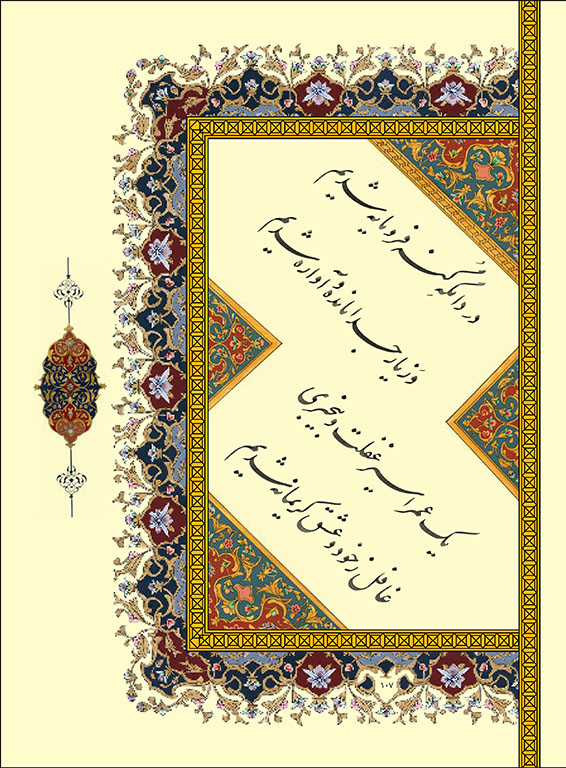 در دام گنه فرومایه شدیم
وَز یار جدا مانده و آواره شدیم
یک عمر اسیر غفلت و بیخبری
غافل ز خود و عشق کریمانه شدیم
۱۰۷